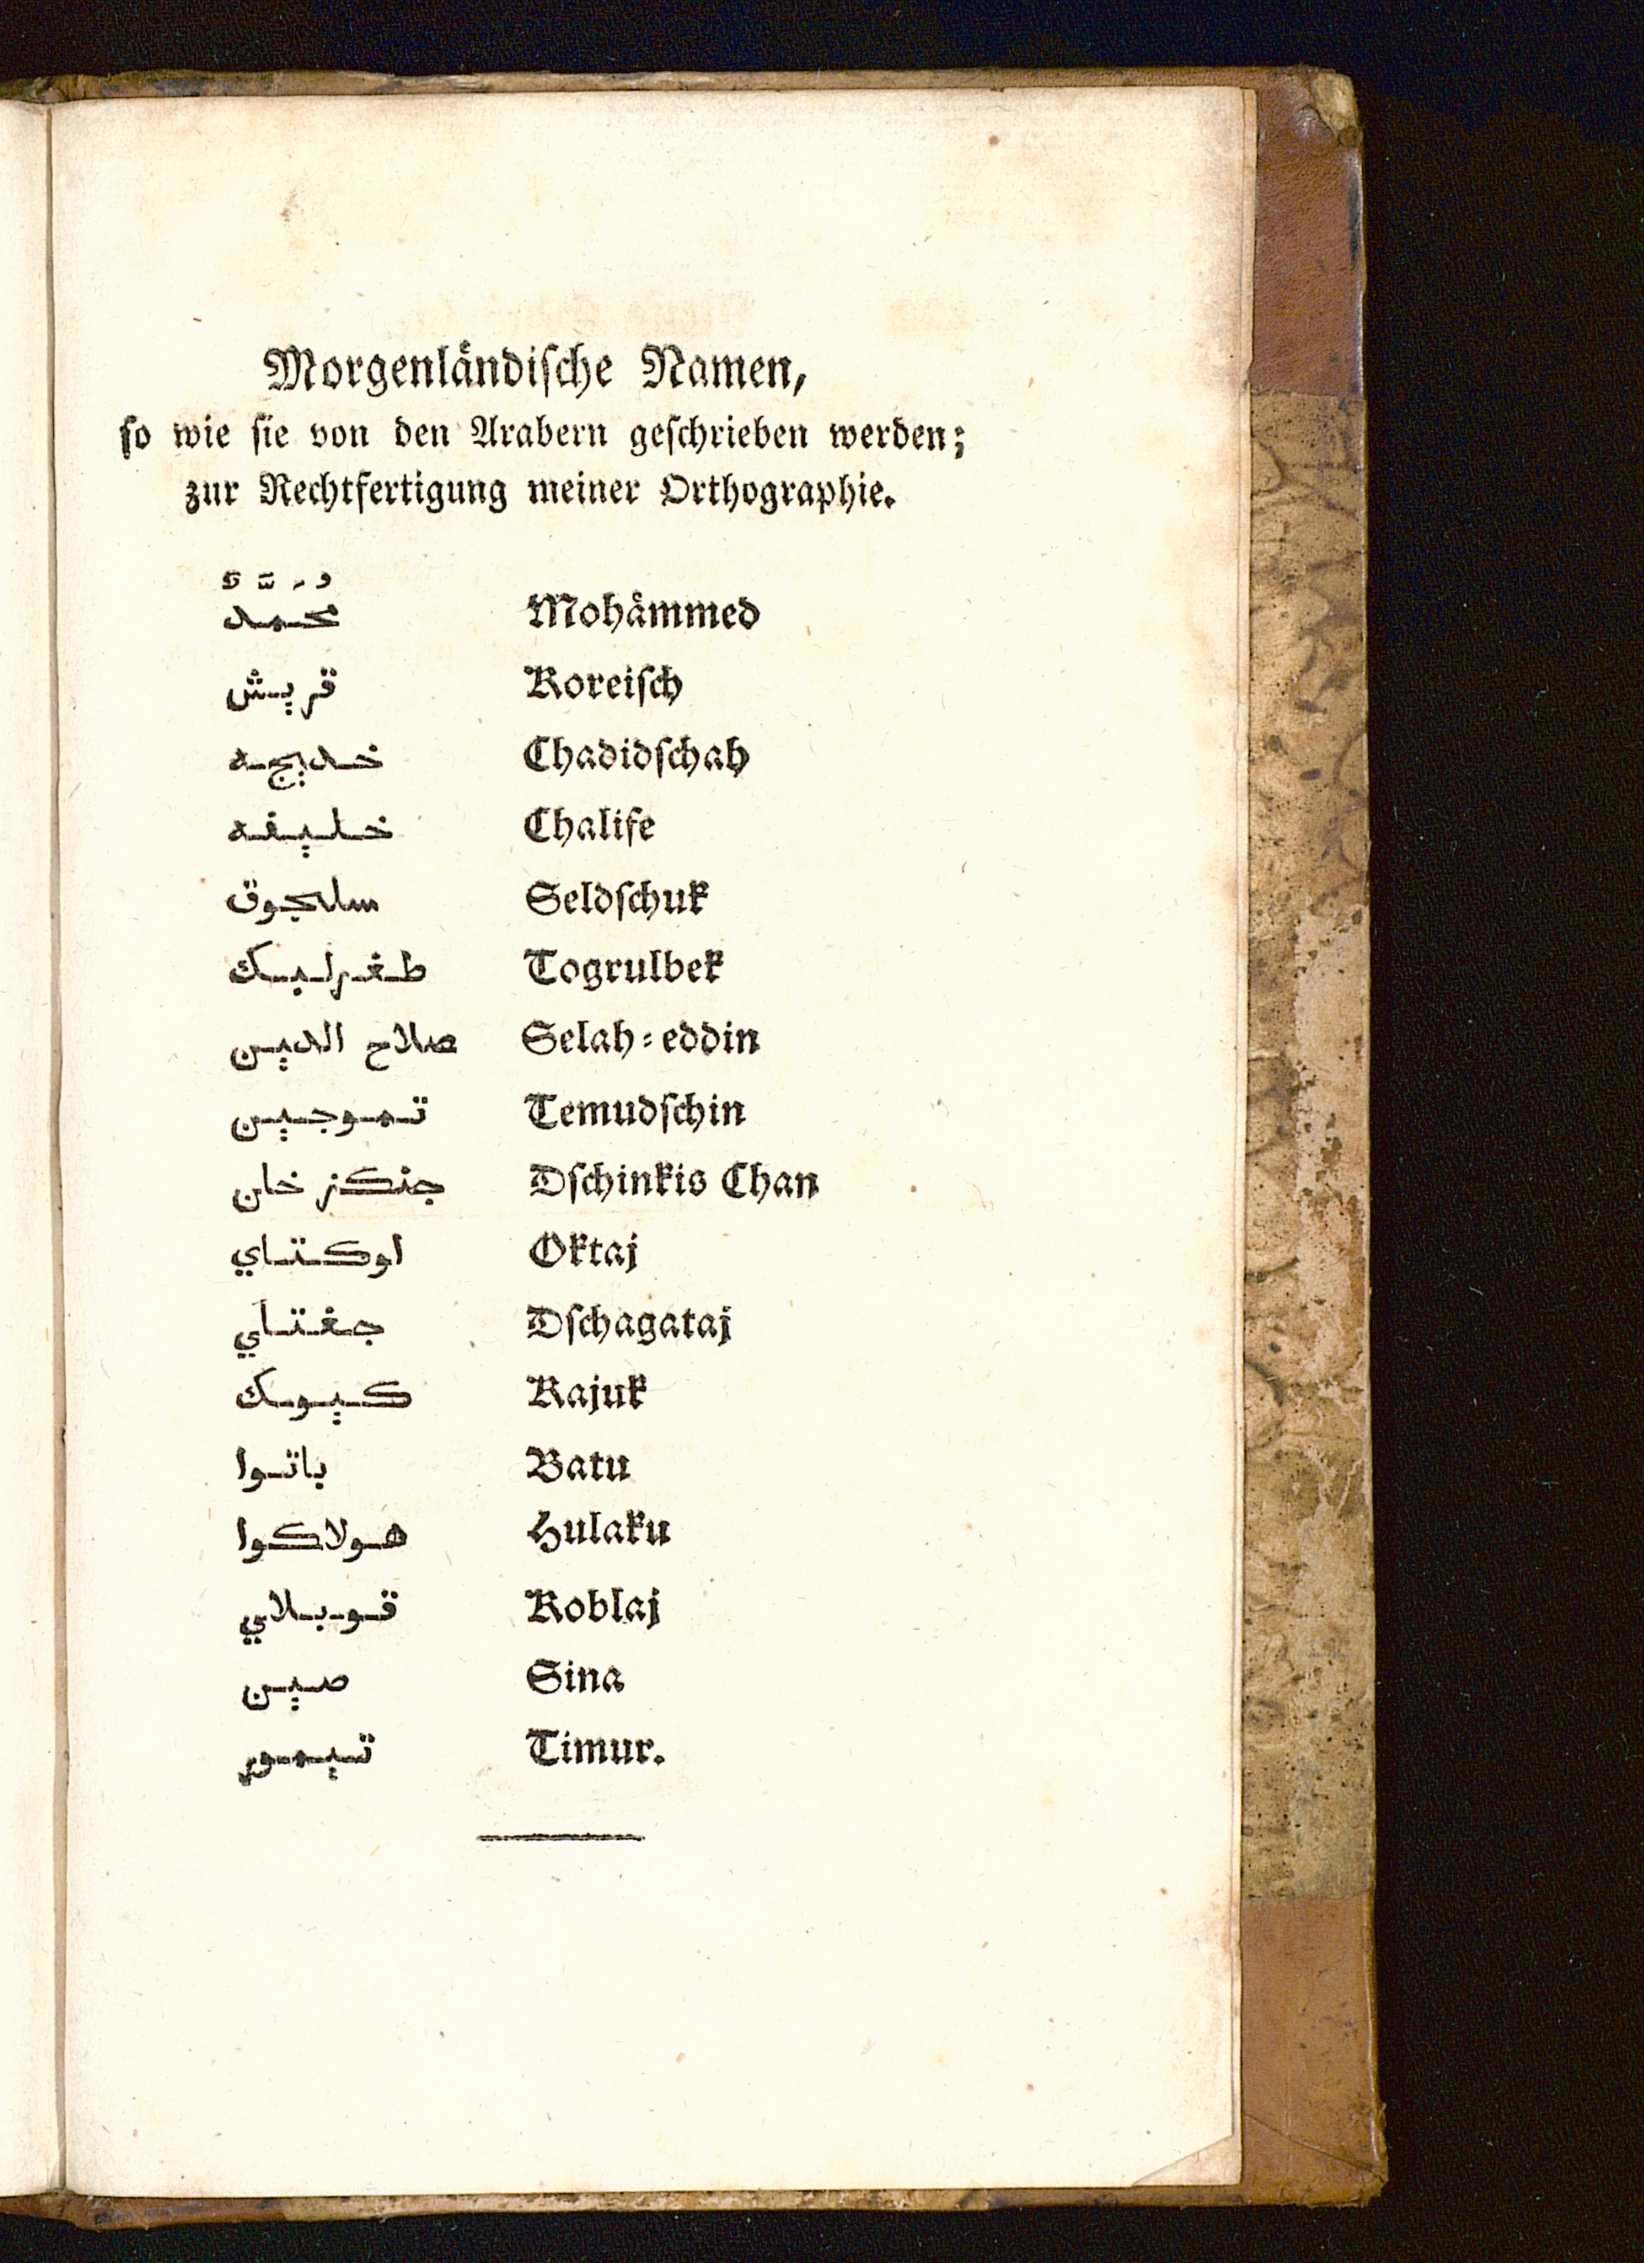 Morgenländische Namen,
so wie sie von den Arabern geschrieben werden;
zur Rechtfertigung meiner Orthographie.
مُحَمَّدٌ Mohämmed
قريش Koreisch
خديجه Chadidschah
خليفه Chalife
سلجوق Seldschuk
طغرلبك Togrulbek
صلاح الدين Selah-eddin
تموجين Temudschin
جنكز خان Dschinkis Chan
اوكتاي Oktaj
جغتاي Dschagataj
كيوك Kajuk
باتوا Batu
هولاكوا Hulaku
قوبلاي Koblaj
صين Sina
تيمور Timur.